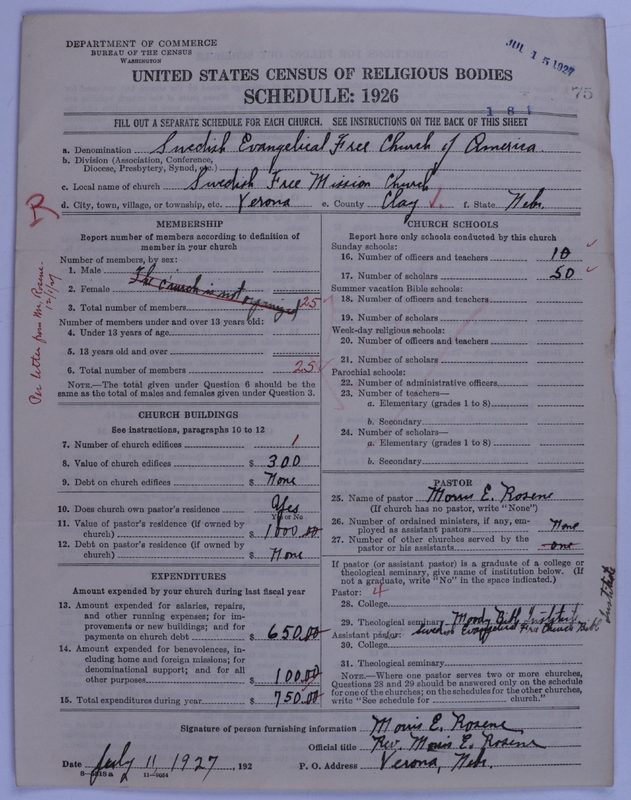 DEPARTMENT OF COMMERCE
BUREAU OF THE CENSUS
WASHINGTON
JUL 15 1927
UNITED STATES CENSUS OF RELIGIOUS BODIES
SCHEDULE: 1926
75
181
FILL OUT A SEPARATE SCHEDULE FOR EACH CHURCH. SEE INSTRUCTIONS ON THE BACK OF THIS SHEET
a. Denomination Swedish Evangelical Free Church of America
b. Division (Association, Conference, Diocese, Presbytery, Synod, etc.)
c. Local name of church Swedish Free Mission Church
d. City, town, village, or township, etc. Verona e. County Clay f. State Nebr.
R
Per letter from Mr. Rosene.
12/1/27
MEMBERSHIP
Report number of members according to definition of
member in your church
Number of members, by sex:
1. Male
2. Female
The church is not organized
3. Total number of members 25
Number of members under and over 13 years old:
4. Under 13 years of age
5. 13 years old and over
6. Total number of members 25
NOTE.—The total given under Question 6 should be
same as the total of males and females given under Question 3.
CHURCH BUILDINGS
See instructions, paragraphs 10 to 12
7. Number of church edifices 1
8. Value of church edifices $ 300
9. Debt on church edifices $ None
10. Does church own pastor's residence Yes
Yes or No
11. Value of pastor's residence (if owned by
church) $ 1000.00
12. Debt on pastor's residence (if owned by
church) $ None
EXPENDITURES
Amount expended by your church during last fiscal year
13. Amount expended for salaries, repairs,
and other running expenses; for im-
provements or new buildings; and for
payments on church debt $ 650.00
14. Amount expended for benevolences, in-
cluding home and foreign missions; for
denominational support; and for all
other purposes $ 100.00
15. Total expenditures during year $ 750.00
CHURCH SCHOOLS
Report here only schools conducted by this church
Sunday schools:
16. Number of officers and teachers 10
17. Number of scholars 50
Summer vacation Bible schools:
18. Number of officers and teachers
19. Number of scholars
Week-day religious schools:
20. Number of officers and teachers
21. Number of scholars
Parochial schools:
22. Number of administrative officers
23. Number of teachers—
a. Elementary (grades 1 to 8)
b. Secondary
24. Number of scholars—
a. Elementary (grades 1 to 8)
b. Secondary
PASTOR
25. Name of pastor Morris E. Rosene
(If church has no pastor, write "None")
26. Number of ordained ministers, if any, em-
ployed as assistant pastors None
27. Number of other churches served by the
pastor or his assistants one
If pastor (or assistant pastor) is a graduate of a college or
theological seminary, give name of institution below. (If
not a graduate, write "No" in the space indicated.)
Pastor: 4
28. College
29. Theological seminary Moody Bible Institute
Assistant pastor: Swedish Evangelical Free Church Bible Institute
30. College
31. Theological seminary
NOTE.—Where one pastor serves two or more churches,
Questions 28 and 29 should be answered only on the schedule
for one of the churches; on the schedules for the other churches,
write "See schedule for church."
Signature of person furnishing information Morris E. Rosene
Official title Rev. Morris E. Rosene
Date July 11, 1927, 192 P. O. Address Verona, Nebr.